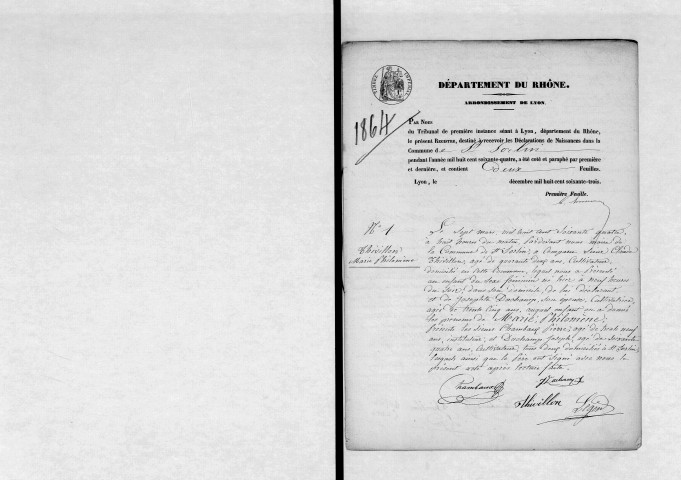 DÉPARTEMENT DU RHÔNE.
ARRONDISSEMENT DE LYON.
1864
PAR NOUS
du Tribunal de première instance séant à Lyon, département du Rhône,
le présent REGISTRE, destiné à recevoir les Déclarations de Naissances dans la
Commune de St Sorlin
pendant l'année mil huit cent soixante-quatre, a été coté et paraphé par première
et dernière, et contient Deux Feuilles.
Lyon, le décembre mil huit cent soixante-trois.
Première Feuille.
No 1
Thivillon
Marie Philomène
Le Sept mars mil huit cent soixante quatre
à huit heures du matin, pardevant nous maire de
la Commune de St Sorlin, a comparu Claude
Thivillon, agé de quarante deux ans, Cultivateur,
domicilié en cette Commune, lequel nous a présenté
un enfant du sexe féminin né hier à neuf heures
du soir, dans son domicile, de lui déclarant
et de Josephte Duchamp, son épouse, Cultivatrice,
agée de trente cinq ans, auquel enfant on a donné
les prénoms de Marie, Philomène,
présents les sieurs Chambaud Pierre, agé de
ans, instituteur, et Duchamp Joseph, agé de soixante
quatre ans, Cultivateur, tous deux domiciliés à St Sorlin,
lesquels ainsi que le père ont signé avec nous le
présent acte après lecture faite.
Chambaud
Thivillon